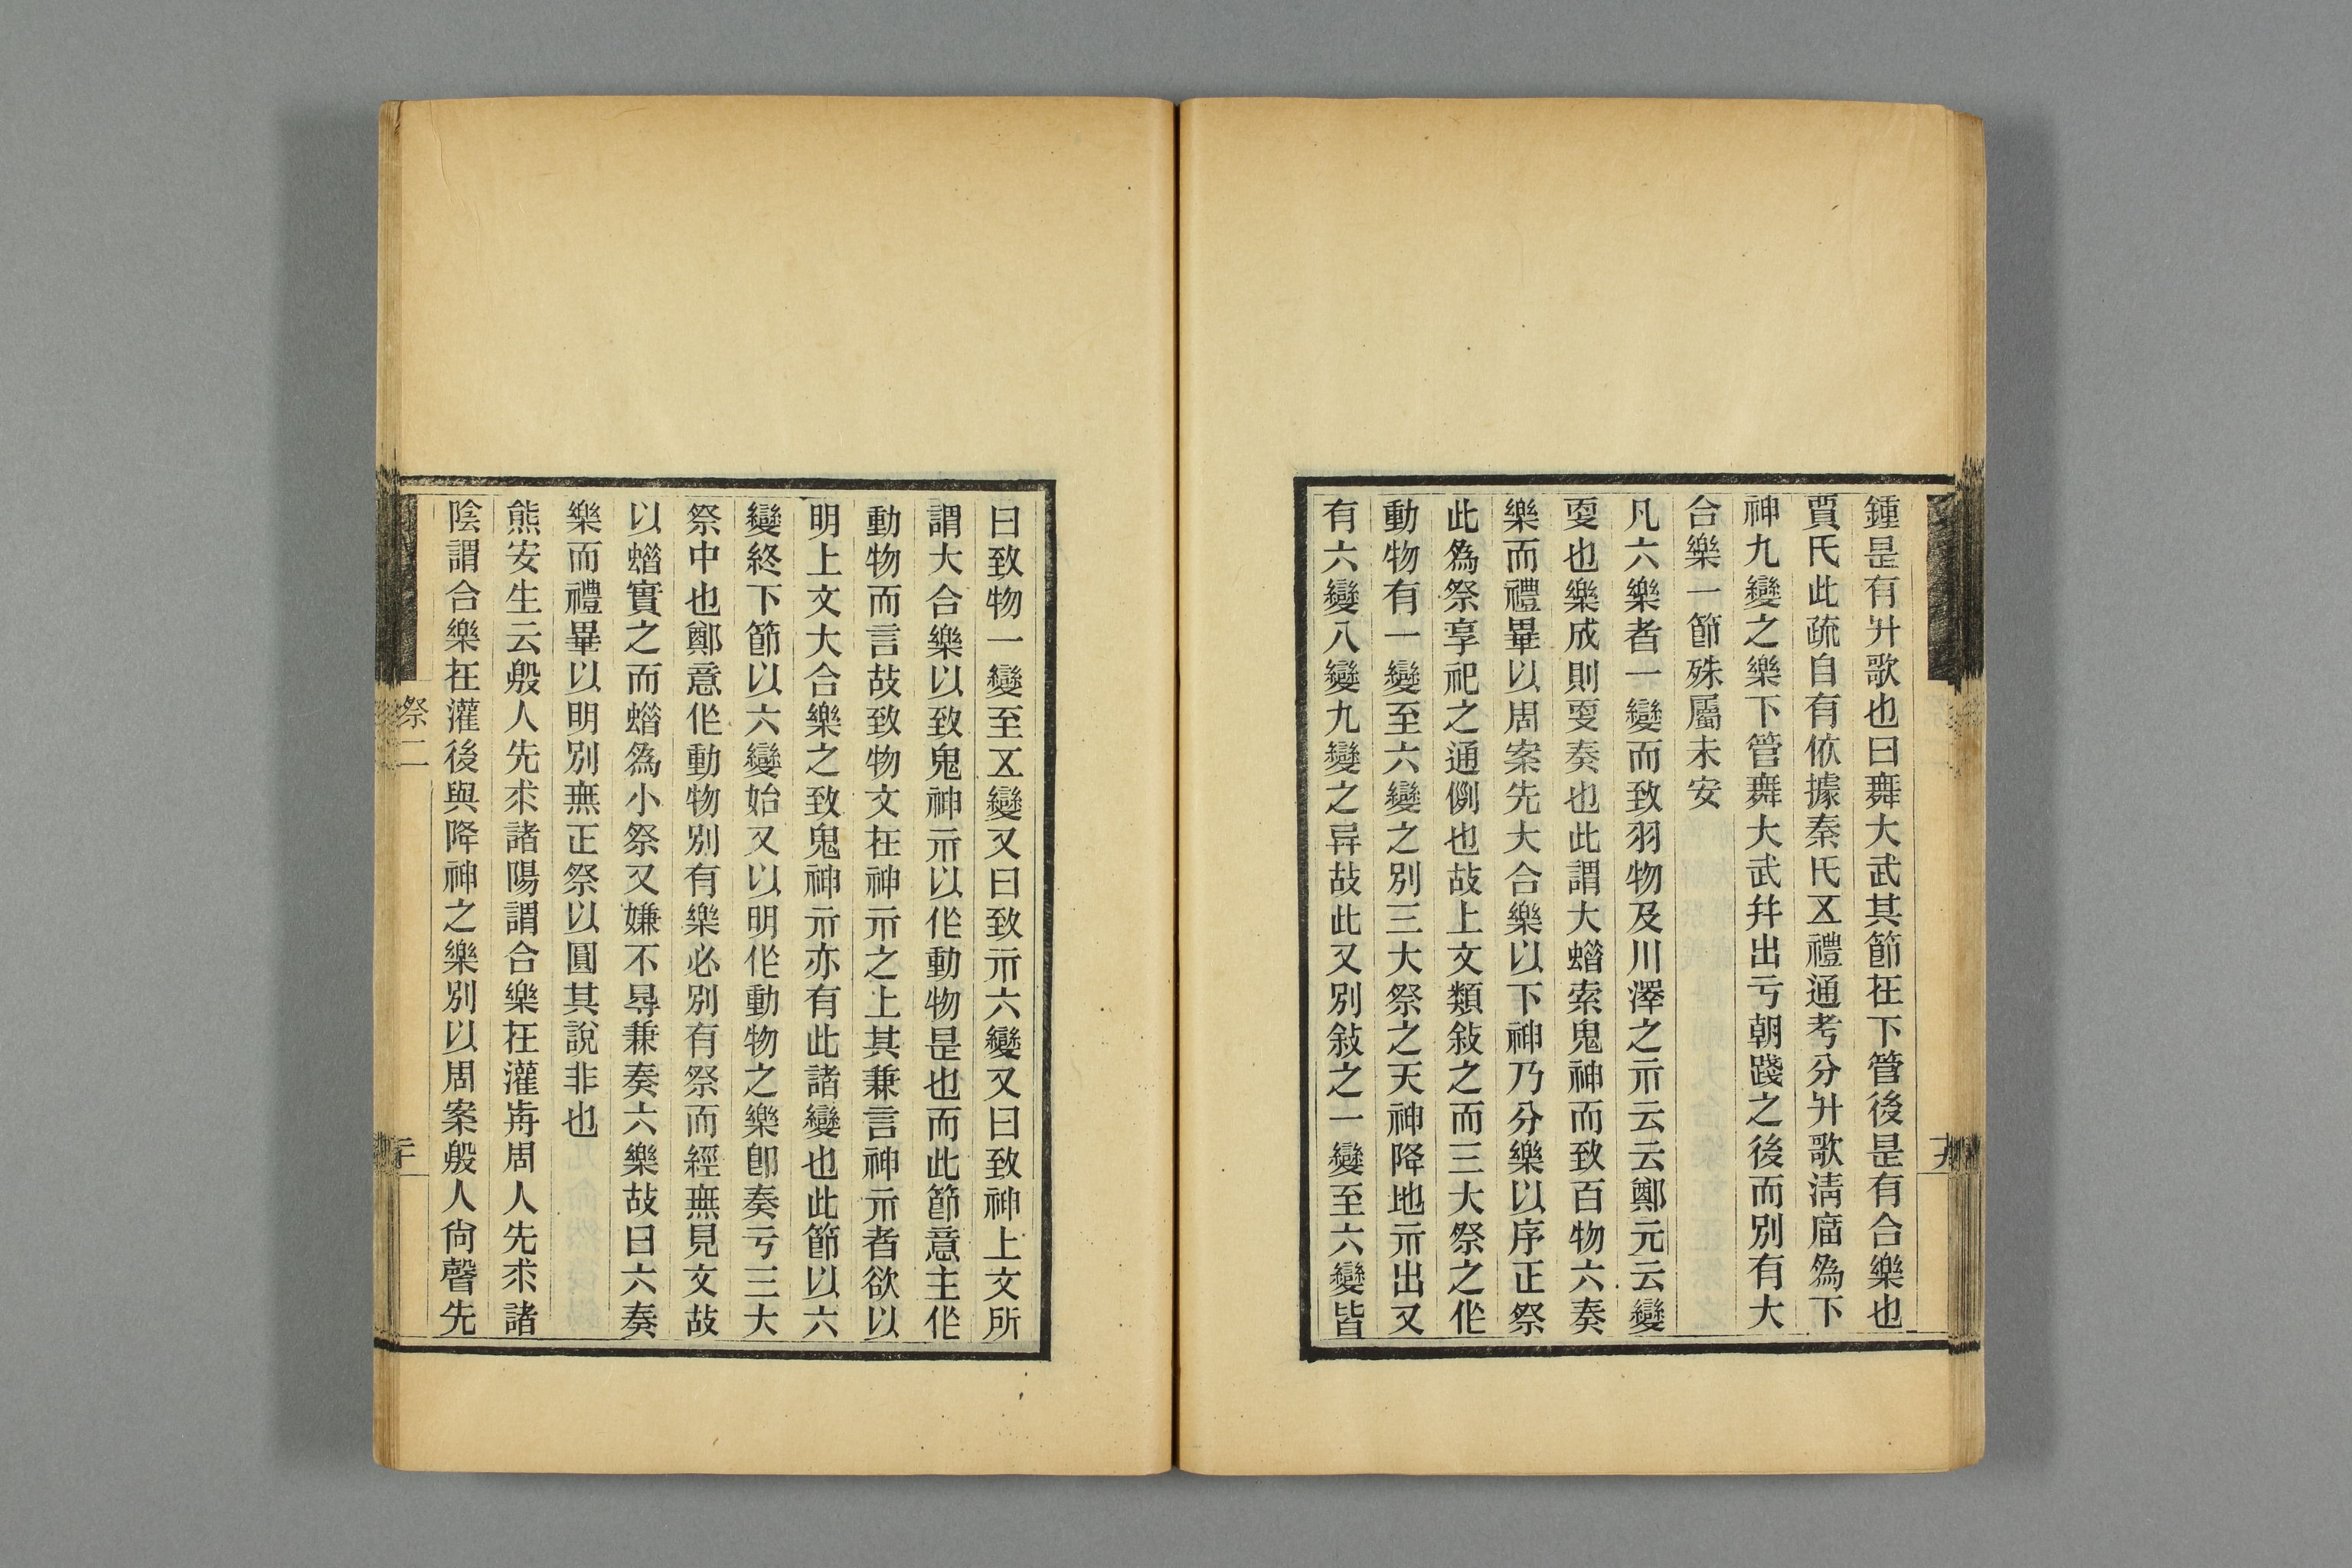 鍾是有升歌也曰舞大武其節在下管後是有合樂也
賈氏此疏自有依據秦氏五禮通考分升歌清廟為下
神九變之樂下管舞大武幷出亏朝踐之後而別有大
合樂一節殊屬未安
凡六樂者一變而致羽物及川澤之示云云鄭元云變
更也樂成則更奏也此謂大蜡索鬼神而致百物六奏
樂而禮畢以周案先大合樂以下神乃分樂以序正祭
此為祭享祀之通例也故上文類敍之而三大祭之作
動物有一變至六變之別三大祭之天神降地示出又
有六變八變九變之异故此又別敍之一變至六變皆
曰致物一變至五變又曰致示六變又曰致神上文所
謂大合樂以致鬼神示以作動物是也而此節意主作
動物而言故致物文在神示之上其兼言神示者欲以
明上文大合樂之致鬼神示亦有此諸變也此節以六
變終下節以六變始又以明作動物之樂卽奏亏三大
祭中也鄭意作動物別有樂必別有祭而經無見文故
以蜡實之而蜡為小祭又嫌不㝵兼奏六樂故曰六奏
樂而禮畢以明別無正祭以圓其說非也
熊安生云殷人先求諸陽謂合樂在灌歬周人先求諸
陰謂合樂在灌後與降神之樂別以周案殷人尙聲先
祭二